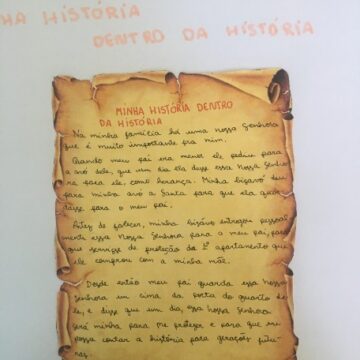 HA HISTÓRIA
DENTRO DA HISTÓRIA
MINHA HISTÓRIA DENTRO
DA HISTÓRIA
Na minha família há uma Nossa Senhora
que é muito importante pra mim.
Quando meu pai era menor ele pediu para
a avó dele, que um dia ela desse essa Nossa Senho
ra para ele, como herança. Minha bisavó deu
para minha avó a Santa para que ela guar
dasse para o meu pai.
Antes de falecer, minha bisavó entregou pessoal
mente essa Nossa Senhora para o meu pai, para
que servisse de proteção do 1º apartamento que
ele comprou com a minha mãe.
Desde então meu pai guarda essa Nossa
Senhora em cima da porta do quarto de
le, e disse que um dia, essa Nossa Senhora
será minha para me proteger e para que eu
possa contar a história para gerações futu
ras.